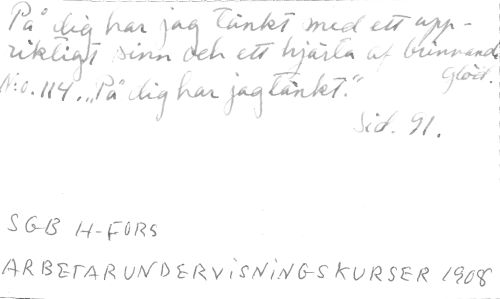 På dig har jag tänkt med ett upp-
riktigt sinn och ett hjärta af brinnande
glöd.
N:o. 114. „På dig har jag tänkt."
Sid. 91.
SGB H-FORS
ARBETARUNDERVISNINGSKURSER 1908